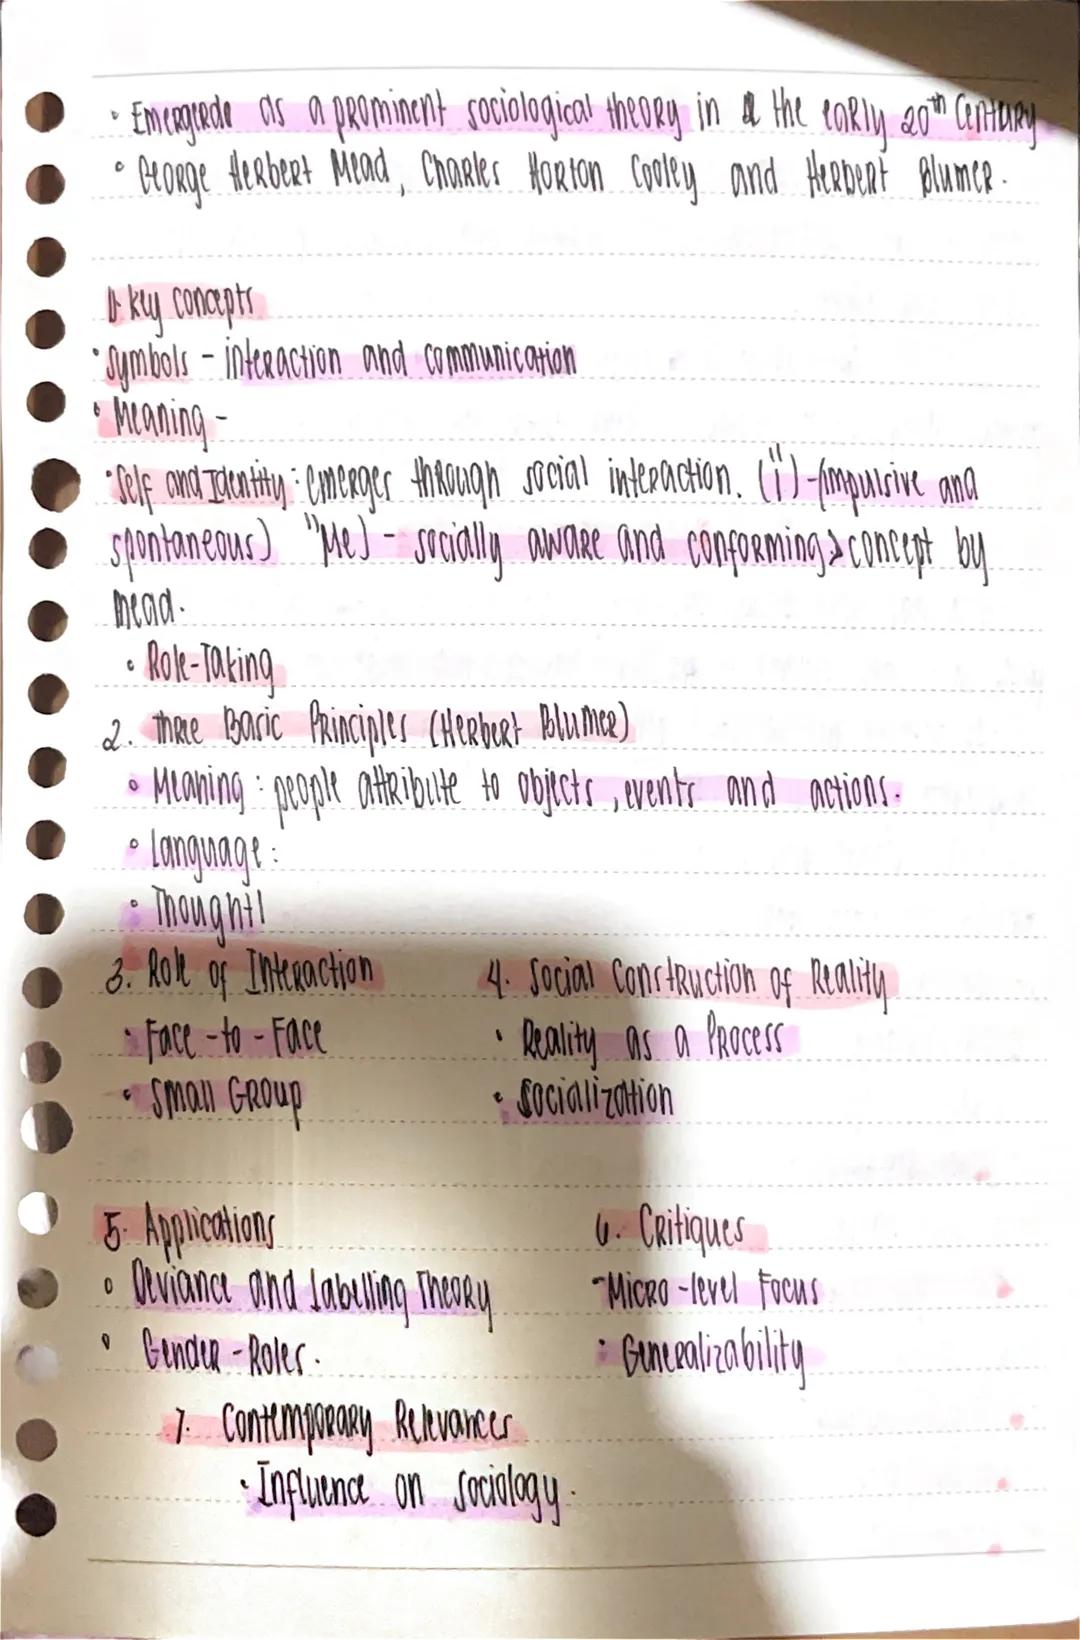 • Emergerde as a prominent sociological theory in the early 20th Century
• George Herbert Mead, Charles Horton Cooley and Herbert Blumer.
1. key concepts
• Symbols - interaction and communication
• Meaning -
• Self and Identity : emerges through social interaction. ("i") - (impulsive and
spontaneous) "Me) - socially aware and conforming > concept by
mead.
• Role-Taking
2. Three Basic Principles (Herbert Blumer)
• Meaning : people attribute to objects, events and actions.
• Language :
• Thought!
3. Role of Interaction
• Face - to - Face
• Small Group
4. Social Construction of Reality
• Reality as a Process
• Socialization
5. Applications
• Deviance and Labelling Theory
• Gender - Roles.
6. Critiques
- Micro - level Focus
: Generalizability
7. Contemporary Relevances
• Influence on Sociology.